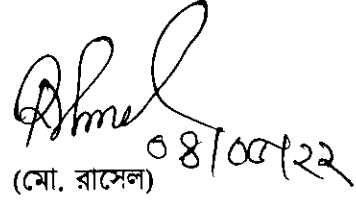 ০৪/০৫/২২
(মো. রাসেল)